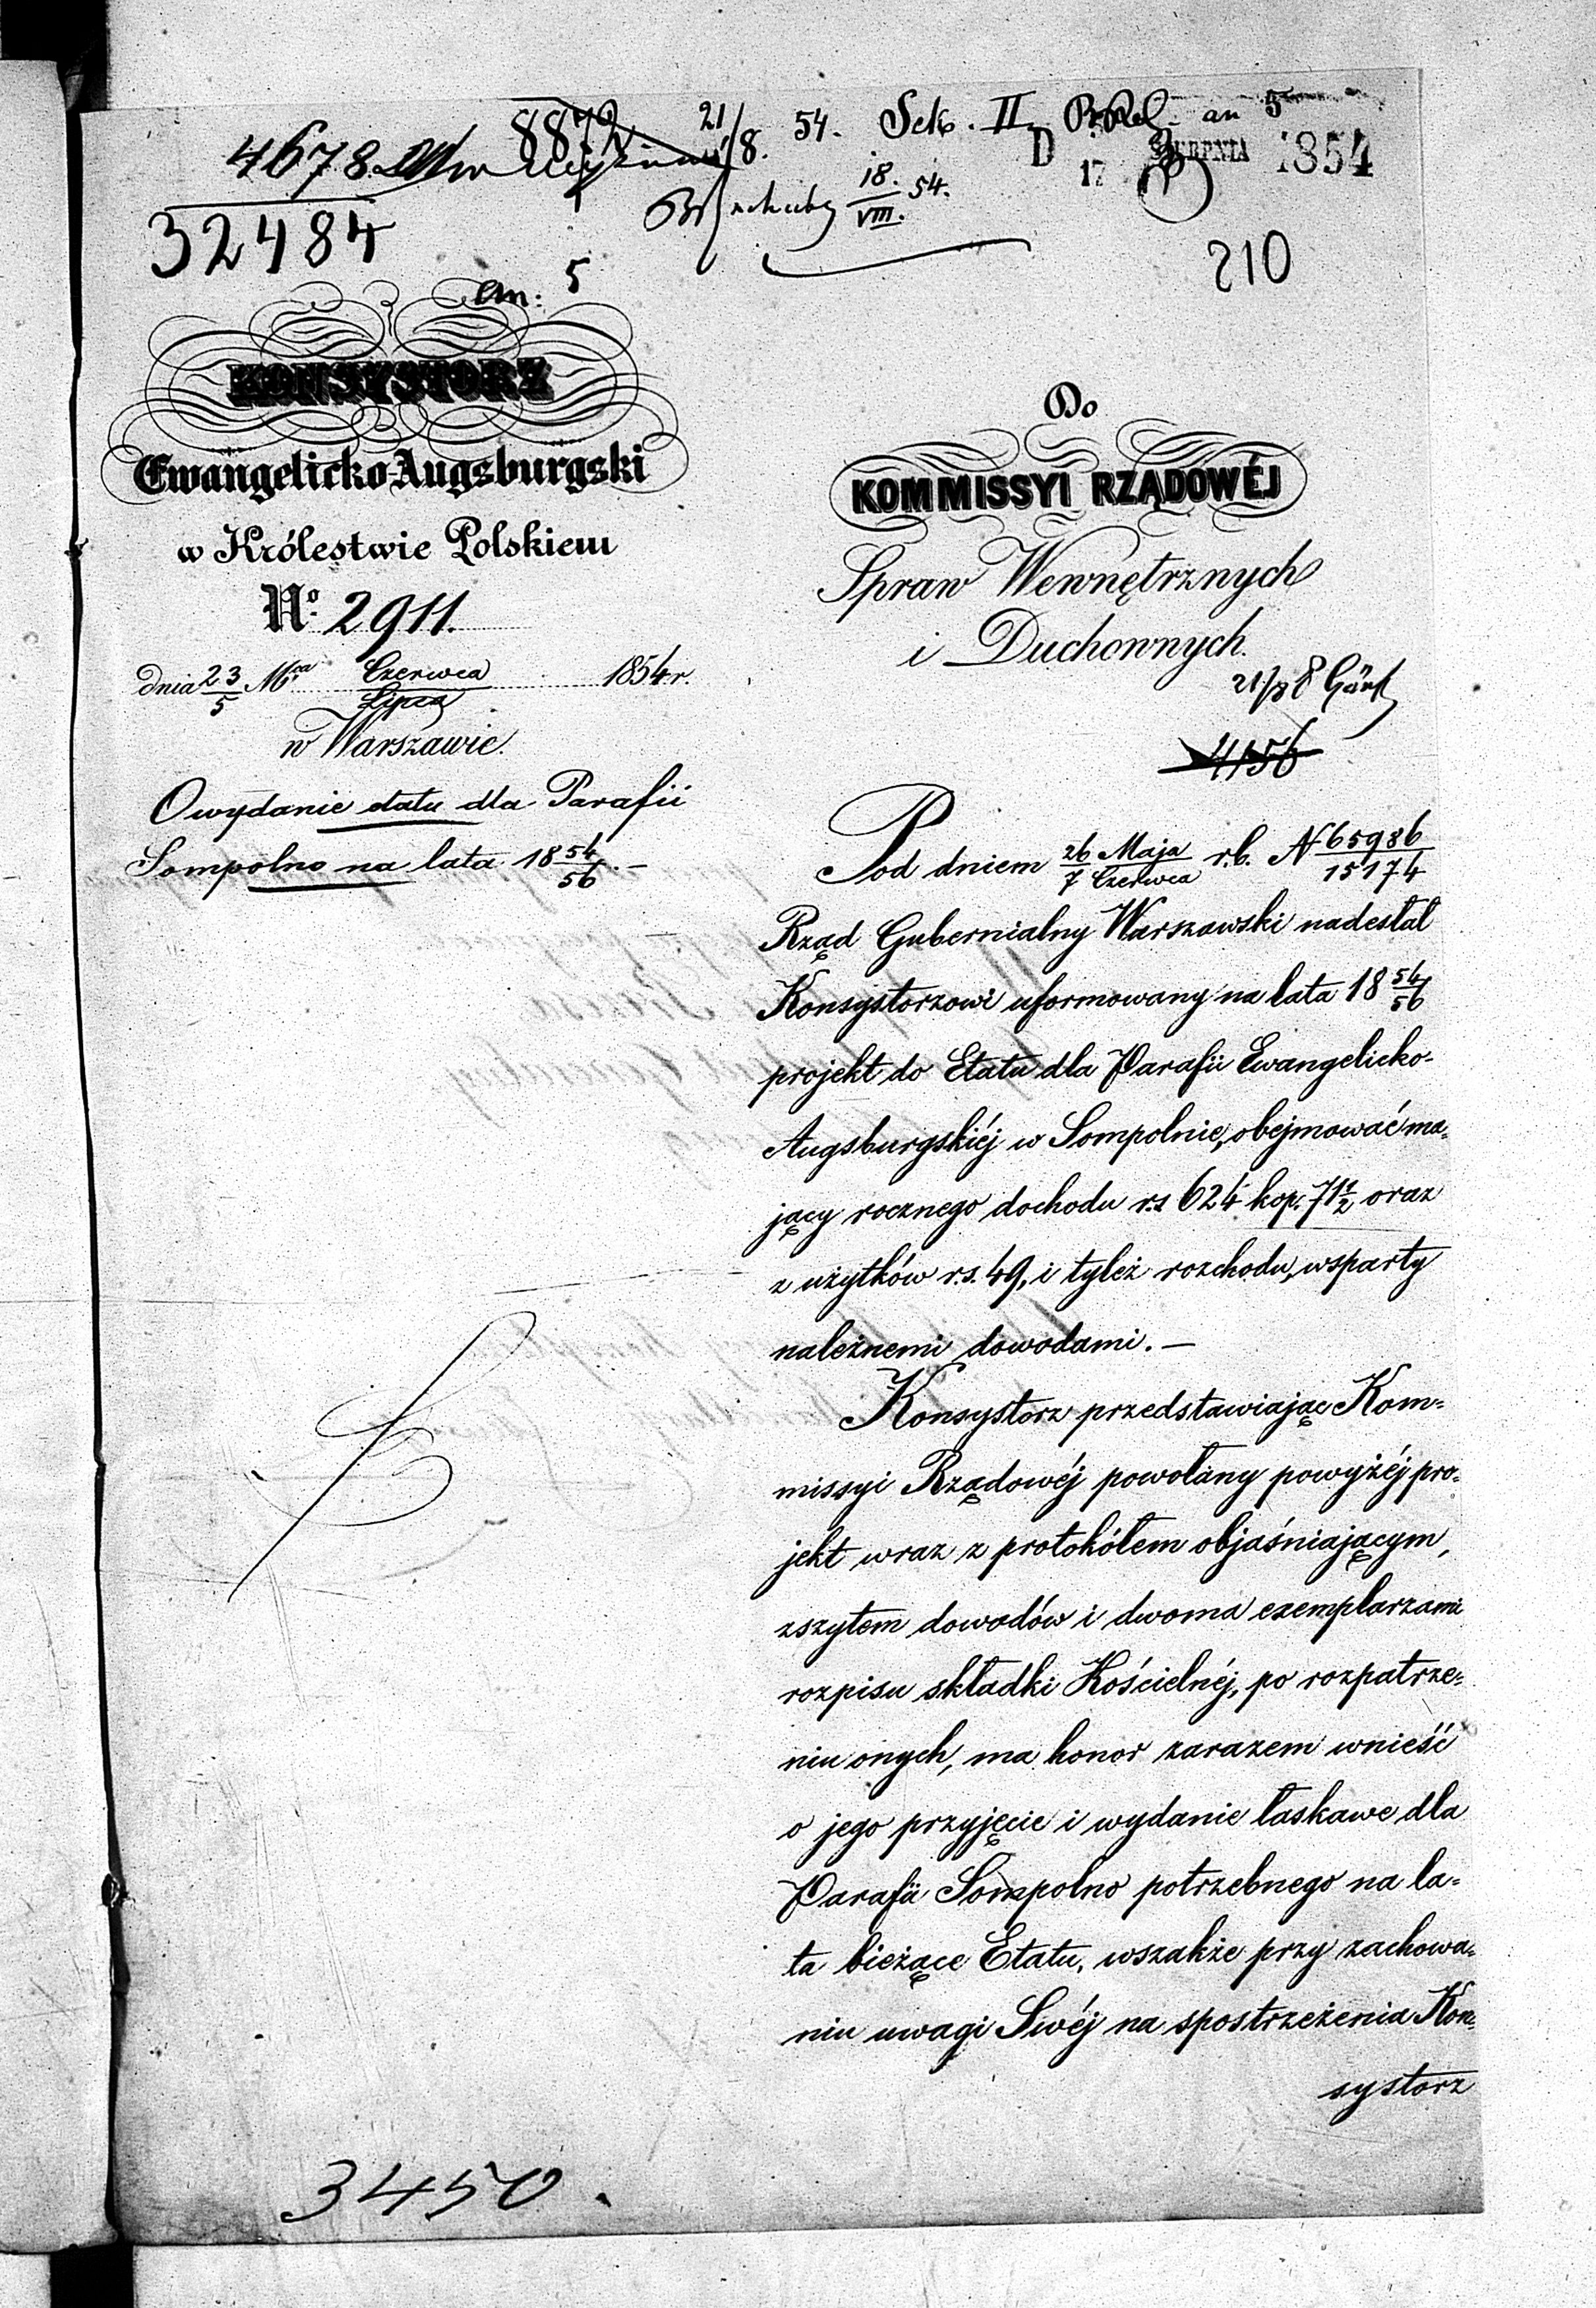 4678
8872
21/8. 54. Sek. II
an 5
D 17 SIERPNIA 1854
18./VIII. 54.
32484
210
an: 5
KONSYSTORZ
Ewangelicko Augsburgski
w Królestwie Polskiem
No. 2911.
dnia 23/5 Mca Czerwca/Lipca 1854 r.
w Warszawie.
O wydanie etatu dla Parafii
Sompolno na lata 18 54/56. —
Do
KOMMISSYI RZĄDOWÉJ
Spraw Wewnętrznych
i Duchownych.
21/8
4156
Pod dniem 26 Maja/7 Czerwca r.b. N 65986/15174
Rząd Gubernialny Warszawski nadesłał
Konsystorzowi uformowany na lata 18 54/56
projekt do Etatu dla Parafii Ewangelicko-
Augsburgskiéj w Sompolnie, obejmować ma-
jący rocznego dochodu r.s 624 kop. 71 1/2 oraz
z użytków r.s. 49, i tyleż rozchodu, wsparty
należnemi dowodami. —
Konsystorz przedstawiając Kom-
missyi Rządowéj powołany powyżéj pro-
jekt wraz z protokółem objaśniającym,
zszytem dowodów i dwoma exemplarzami
rozpisu składki Kościelnéj, po rozpatrze-
niu onych, ma honor zarazem wnieść
o jego przyjęcie i wydanie łaskawe dla
Parafii Sompolno potrzebnego na la-
ta bieżące Etatu, wszakże przy zachowa-
niu uwagi Swéj na spostrzeżenia Kon-
systorz
3450.